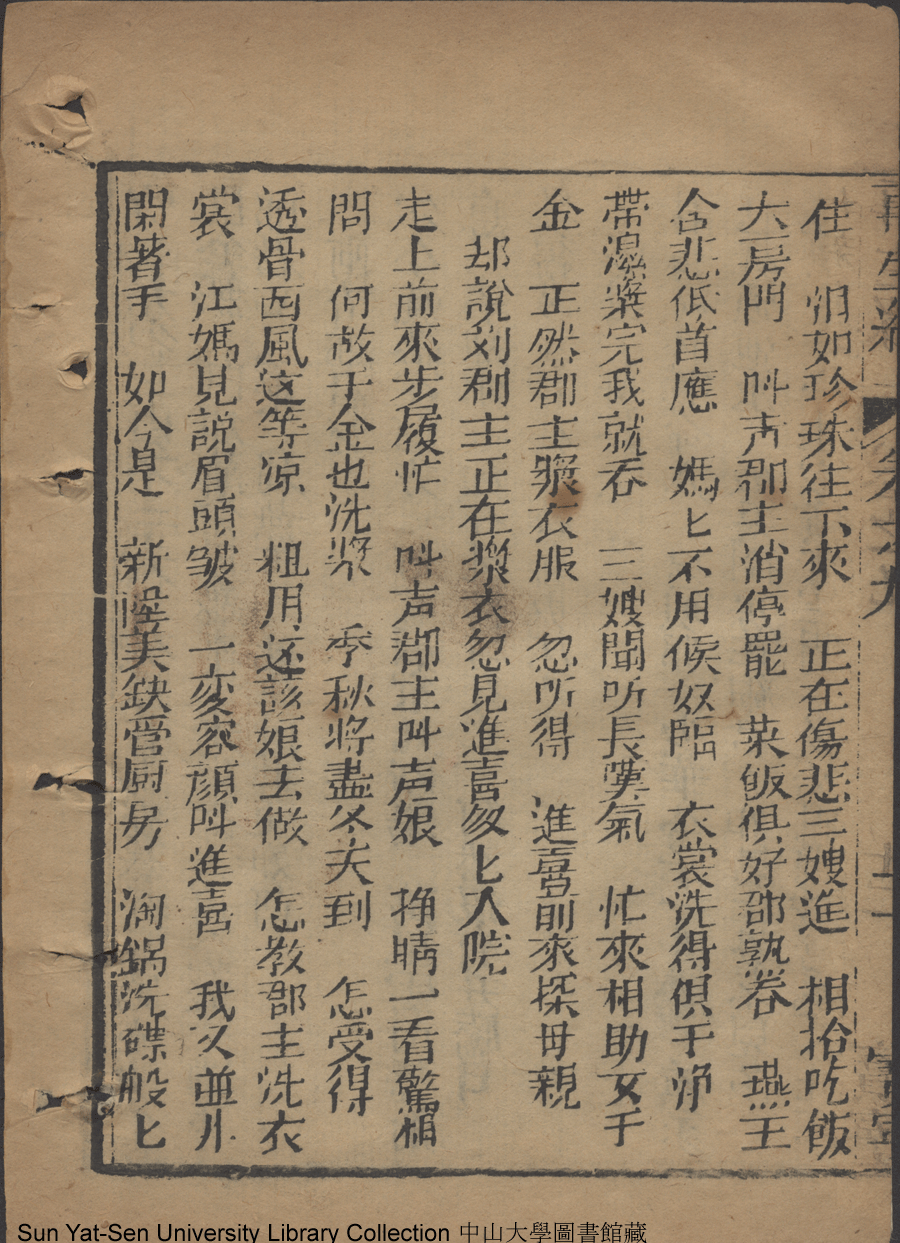 再生緣 卷十六
住 泪如珍珠往下來 正在傷悲三嫂進 相抬吃飯
大房門 叫声郡主消停罷 菜飯俱好邵孰卷 燕王
含悲低首應 媽匕不用候奴臨 衣裳洗得俱干净
帶濕漿完我就吞 三嫂聞听長嘆氣 忙來相助女千
金 正然郡主漿衣服 忽听得 進喜前來探母親
却說刘郡主正在漿衣忽見進喜匆匕入院
走上前來步履忙 叫声郡主叫声娘 挣睛一看驚相
問 何故千金也洗漿 季秋將盡冬天到 怎受得
透骨西風这等凉 粗用还該娘去做 怎教郡主洗衣
裳 江媽見說眉頭皱 一変容顔叫進喜 我又並非
閑著手 如今是 新陞美缺管厨房 淘鍋洗碟般匕
Sun Yat-Sen University Library Collection 中山大學圖書館藏